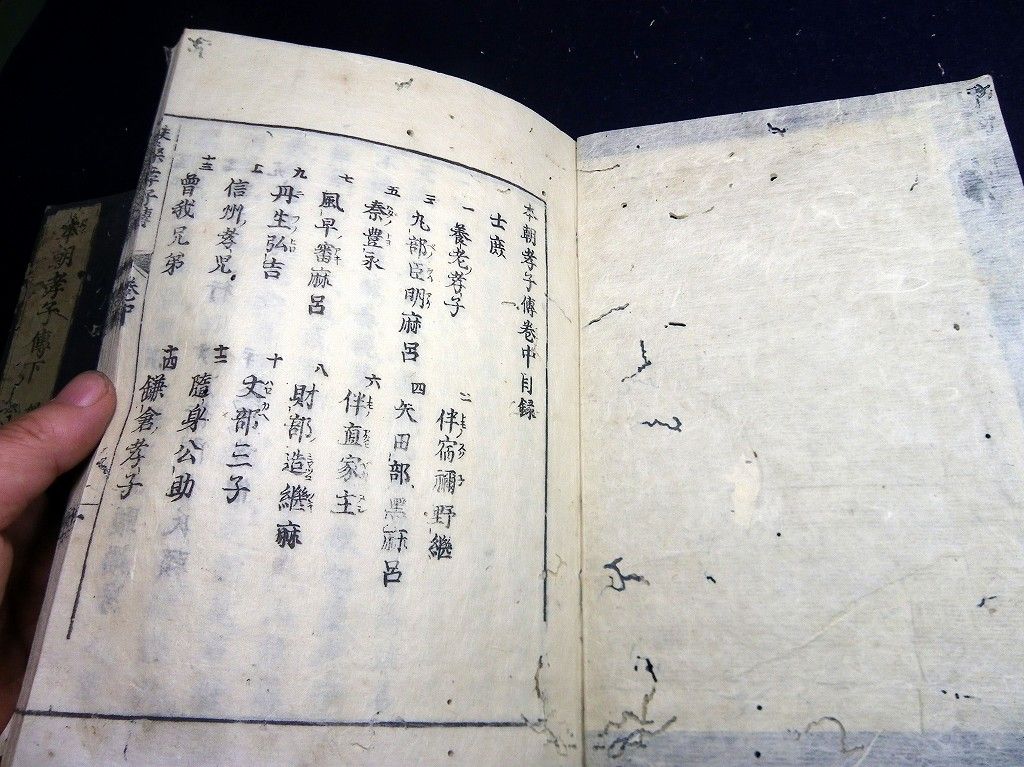 本朝孝子傳巻中目録
士庶
一 養老孝子
二 伴宿禰野繼
三 丸部臣明麻呂
四 矢田部黒麻呂
五 秦豊永
六 伴直家主
七 風早審麻呂
八 財部造繼麻
九 丹生弘吉
十 丈部三子
十一 信州孝児
十二 隨身公助
十三 曾我兄弟
十四 鎌倉孝子
巻中
本朝孝子傳下